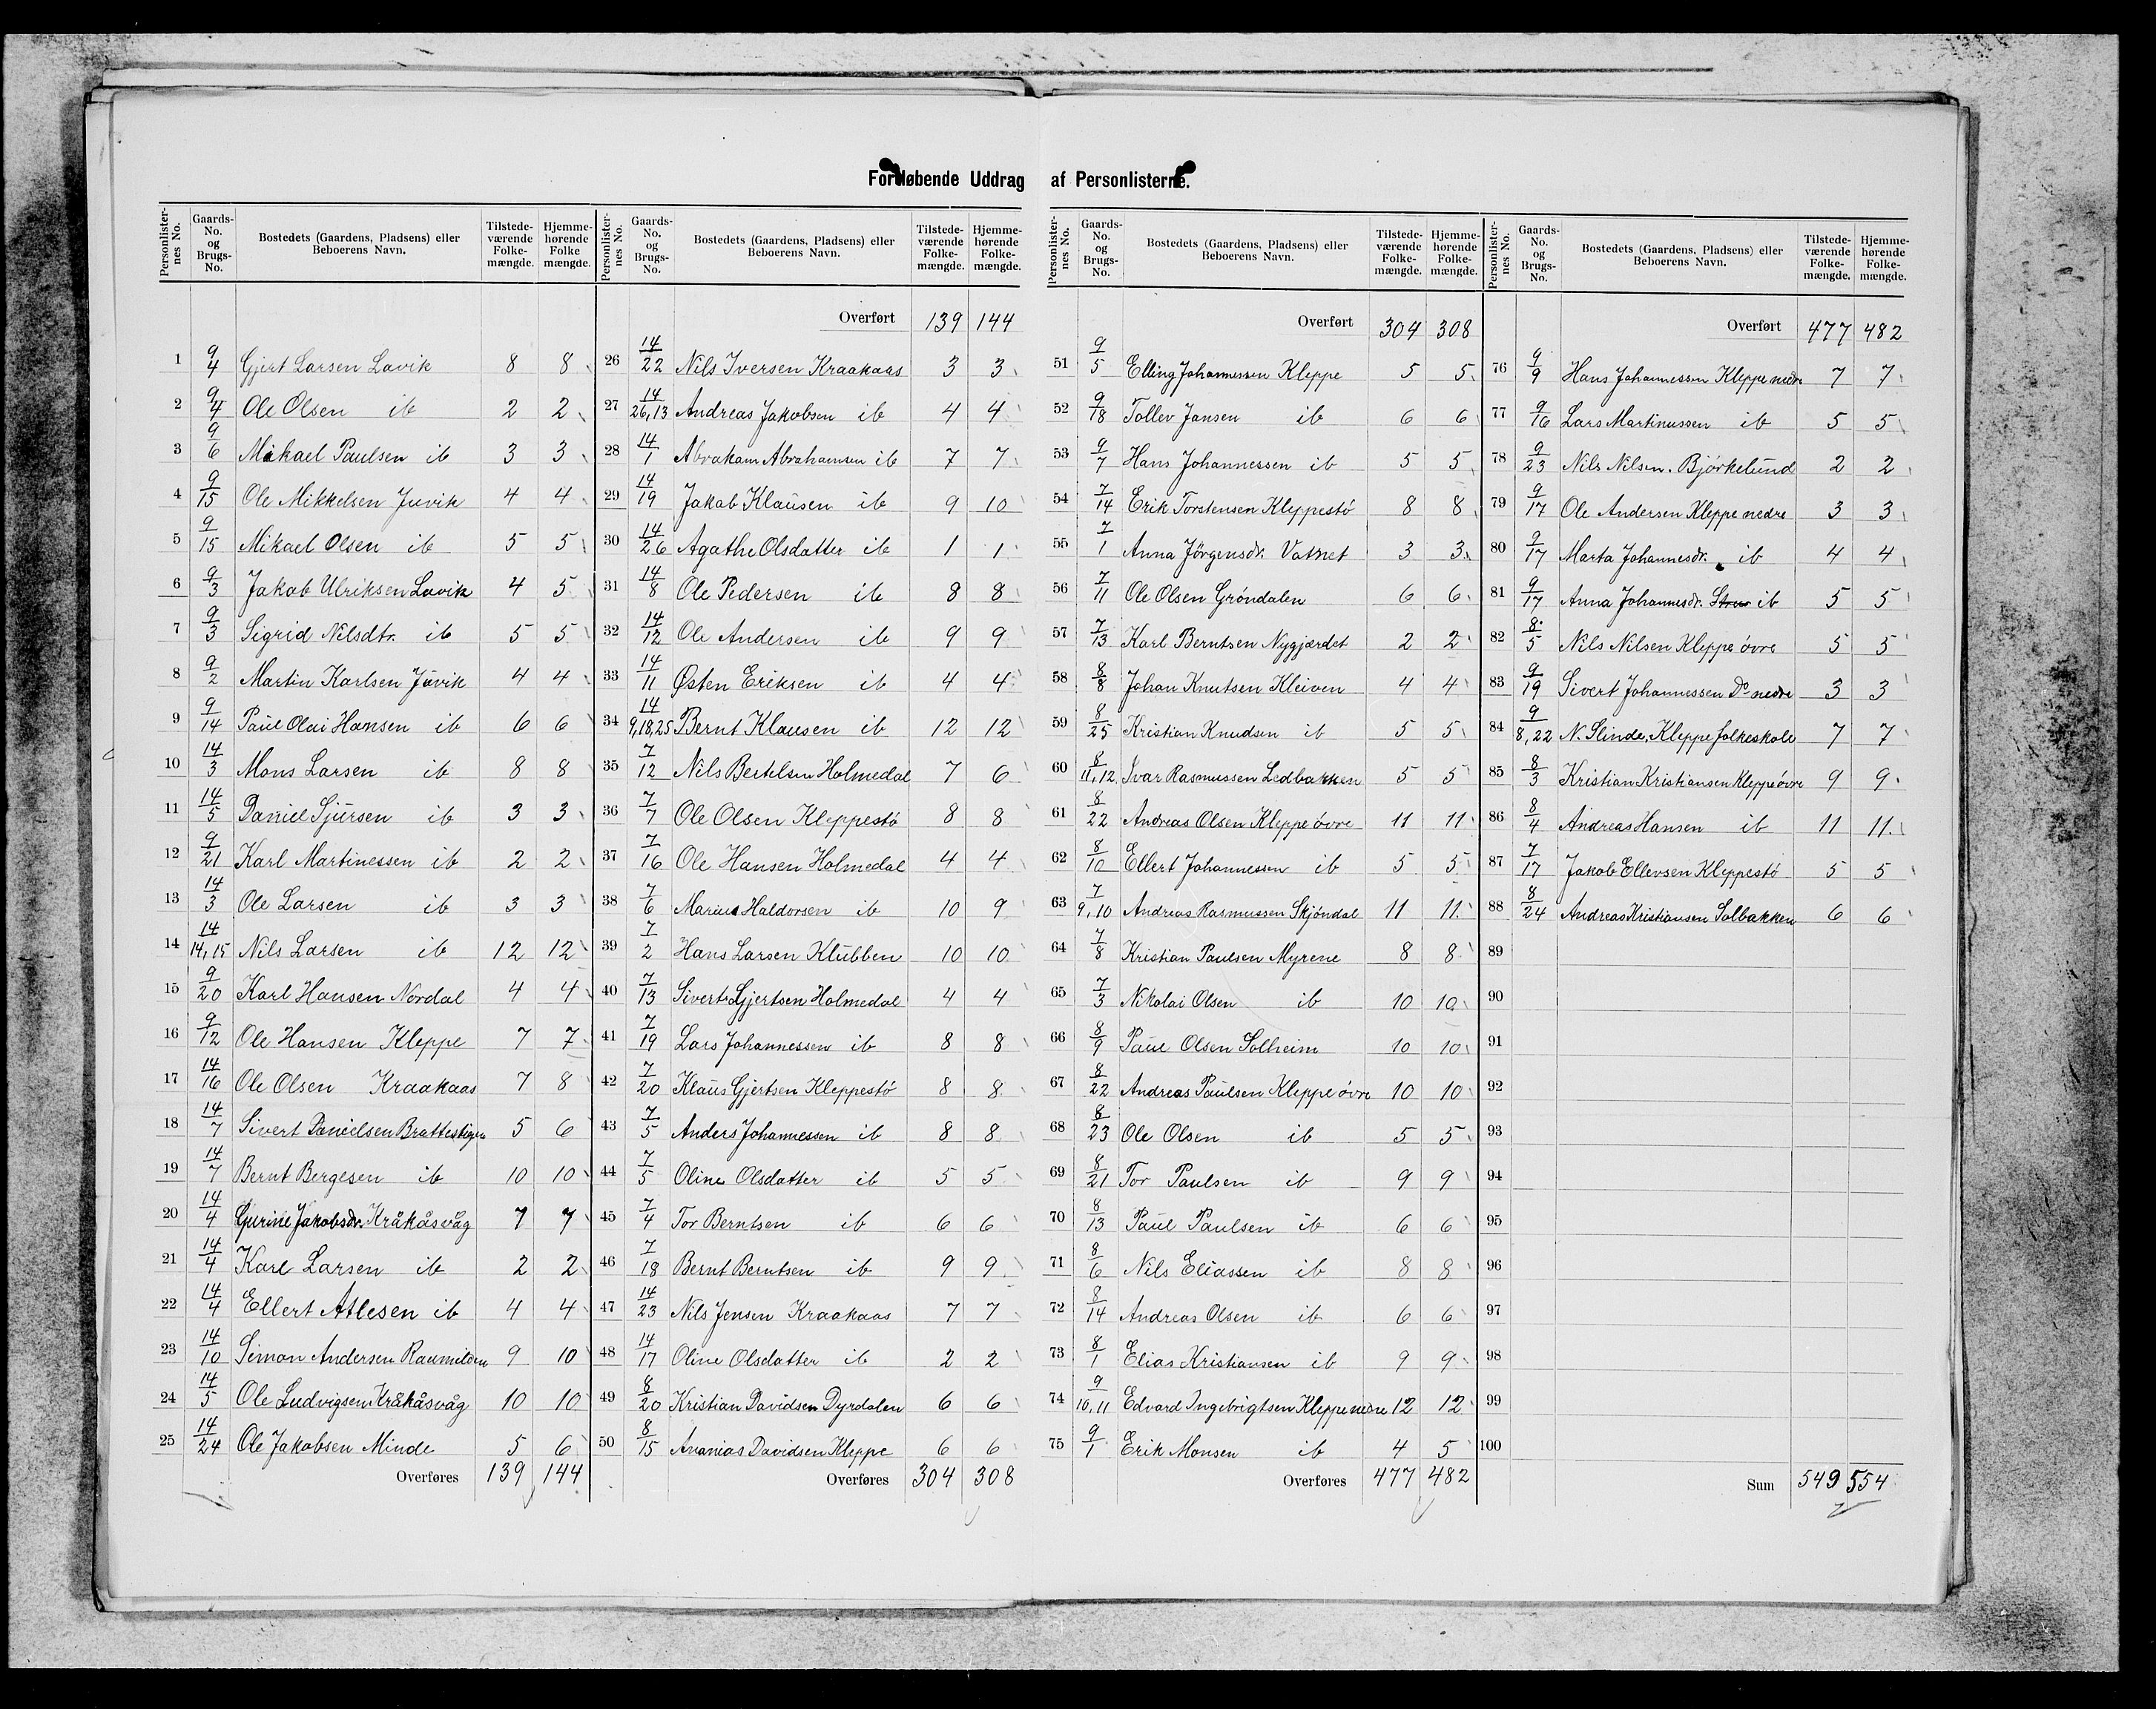 Fortløbende Uddrag af Personlisterne.
Personlister-nes No. | Gaards-No. og Brugs-No. | Bostedets (Gaardens, Pladsens) eller Beboerens Navn. | Tilstede-værende Folke-mængde. | Hjemme-hørende Folke mængde.
1 9/4 Gjert Larsen Lavik 8 8
2 9/4 Ole Olsen ib 2 2
3 9/6 Mikael Paulsen ib 3 3
4 9/15 Ole Mikkelsen Juvik 4 4
5 9/15 Mikael Olsen ib 5 5
6 9/3 Jakob Ulriksen Lavik 4 5
7 9/3 Sigrid Nilsdtr. ib 5 5
8 9/2 Martin Karlsen Juvik 4 4
9 9/14 Paul Olai Hansen ib 6 6
10 14/3 Mons Larsen ib 8 8
11 14/5 Daniel Sjursen ib 3 3
12 9/21 Karl Martinessen ib 2 2
13 14/3 Ole Larsen ib 3 3
14 14/14,15 Nils Larsen ib 12 12
15 9/20 Karl Hansen Nordal 4 4
16 9/12 Ole Hansen Kleppe 7 7
17 14/16 Ole Olsen Kraakaas 7 8
18 14/7 Sivert Danielsen Brattestigen 5 6
19 14/7 Bernt Bergesen ib 10 10
20 14/4 Gurine Jakobsdr. Kråkåsvåg 7 7
21 14/4 Karl Larsen ib 2 2
22 14/4 Ellert Atlesen ib 4 4
23 14/10 Simon Andersen Raumilden 9 10
24 14/5 Ole Ludvigsen Kråkåsvåg 10 10
25 14/24 Ole Jakobsen Minde 5 6
Overføres 139 144
Personlister-nes No. | Gaards-No. og Brugs-No. | Bostedets (Gaardens, Pladsens) eller Beboerens Navn. | Tilstede-værende Folke-mængde. | Hjemme-hørende Folke-mængde.
Overført 139 144
26 14/22 Nils Iversen Kraakaas 3 3
27 14/26,13 Andreas Jakobsen ib 4 4
28 14/1 Abraham Abrahamsen ib 7 7
29 14/19 Jakob Klausen ib 9 10
30 14/26 Agathe Olsdatter ib 1 1
31 14/8 Ole Pedersen ib 8 8
32 14/12 Ole Andersen ib 9 9
33 14/11 Østen Eriksen ib 4 4
34 14/9,18,25 Bernt Klausen ib 12 12
35 7/12 Nils Bertelsen Holmedal 7 6
36 7/7 Ole Olsen Kleppestö 8 8
37 7/16 Ole Hansen Holmedal 4 4
38 7/6 Marius Haldorsen ib 10 9
39 7/2 Hans Larsen Klubben 10 10
40 7/13 Sivert Gjertsen Holmedal 4 4
41 7/19 Lars Johannessen ib 8 8
42 7/20 Klaus Gjertsen Kleppestö 8 8
43 7/5 Anders Johannessen ib 8 8
44 7/5 Oline Olsdatter ib 5 5
45 7/4 Tor Berntsen ib 6 6
46 7/18 Bernt Berntsen ib 9 9
47 14/23 Nils Jensen Kraakaas 7 7
48 14/17 Oline Olsdatter ib 2 2
49 8/20 Kristian Davidsen Dyrdalen 6 6
50 8/15 Ananias Davidsen Kleppe 6 6
Overføres 304 308
Personlister-nes No. | Gaards-No. og Brugs-No. | Bostedets (Gaardens, Pladsens) eller Beboerens Navn. | Tilstede-værende Folke-mængde. | Hjemme-hørende Folke-mængde.
Overført 304 308
51 9/5 Elling Johannessen Kleppe 5 5
52 9/18 Tollev Jansen ib 6 6
53 9/7 Hans Johannessen ib 5 5
54 7/14 Erik Torstensen Kleppestö 8 8
55 7/1 Anna Jörgensdr. Vatnet 3 3
56 7/11 Ole Olsen Gröndalen 6 6
57 7/13 Karl Berntsen Nygjærdet 2 2
58 8/8 Johan Knutsen Kleiven 4 4
59 8/25 Kristian Knudsen ib 5 5
60 8/11,12 Ivar Rasmussen Ledbakken 5 5
61 8/22 Andreas Olsen Kleppe övre 11 11
62 8/10 Ellert Johannessen ib 5 5
63 7/9,10 Andreas Rasmussen Skjöndal 11 11
64 7/8 Kristian Paulsen Myrene 8 8
65 7/3 Nikolai Olsen ib 10 10
66 8/9 Paul Olsen Solheim 10 10
67 8/22 Andreas Paulsen Kleppe övre 10 10
68 8/23 Ole Olsen ib 5 5
69 8/21 Tor Paulsen ib 9 9
70 8/13 Paul Paulsen ib 6 6
71 8/6 Nils Eliassen ib 8 8
72 8/14 Andreas Olsen ib 6 6
73 8/1 Elias Kristiansen ib 9 9
74 9/10,11 Edvard Ingebrigtsen Kleppe nedre 12 12
75 9/1 Erik Monsen ib 4 5
Overføres 477 482
Personlister-nes No. | Gaards-No. og Brugs-No. | Bostedets (Gaardens, Pladsens) eller Beboerens Navn. | Tilstede-værende Folke-mængde. | Hjemme-hørende Folke-mængde.
Overført 477 482
76 9/9 Hans Johannessen Kleppe nedre 7 7
77 9/16 Lars Martinussen ib 5 5
78 9/23 Nils Nilsen. Björkelund 2 2
79 9/17 Ole Andersen Kleppe nedre 3 3
80 9/17 Marta Johannesdr. ib 4 4
81 9/17 Anna Johannesdr. ib 5 5
82 8/5 Nils Nilsen Kleppe övre 5 5
83 9/19 Sivert Johannessen Do nedre 3 3
84 9/8,22 N. Slinde, Kleppe folkeskole 7 7
85 8/3 Kristian Kristiansen Kleppe övre 9 9
86 8/4 Andreas Hansen ib 11 11
87 7/17 Jakob Ellevsen Kleppestö 5 5
88 8/24 Andreas Kristiansen Solbakken 6 6
89
90
91
92
93
94
95
96
97
98
99
100
Sum 549 554